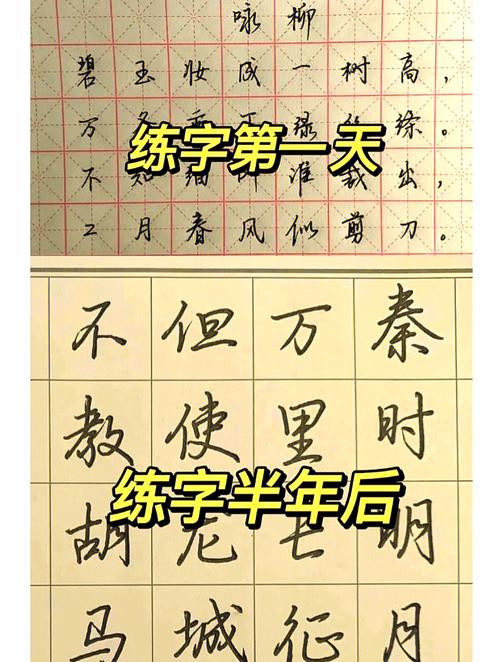 咏柳
碧玉妆成一树高，
万条垂下绿丝绦。
练字第一天
不知细叶谁裁出，
二月春风似剪刀。
秦时明月
万里长征
但使龙城
不教胡马
练字半年后